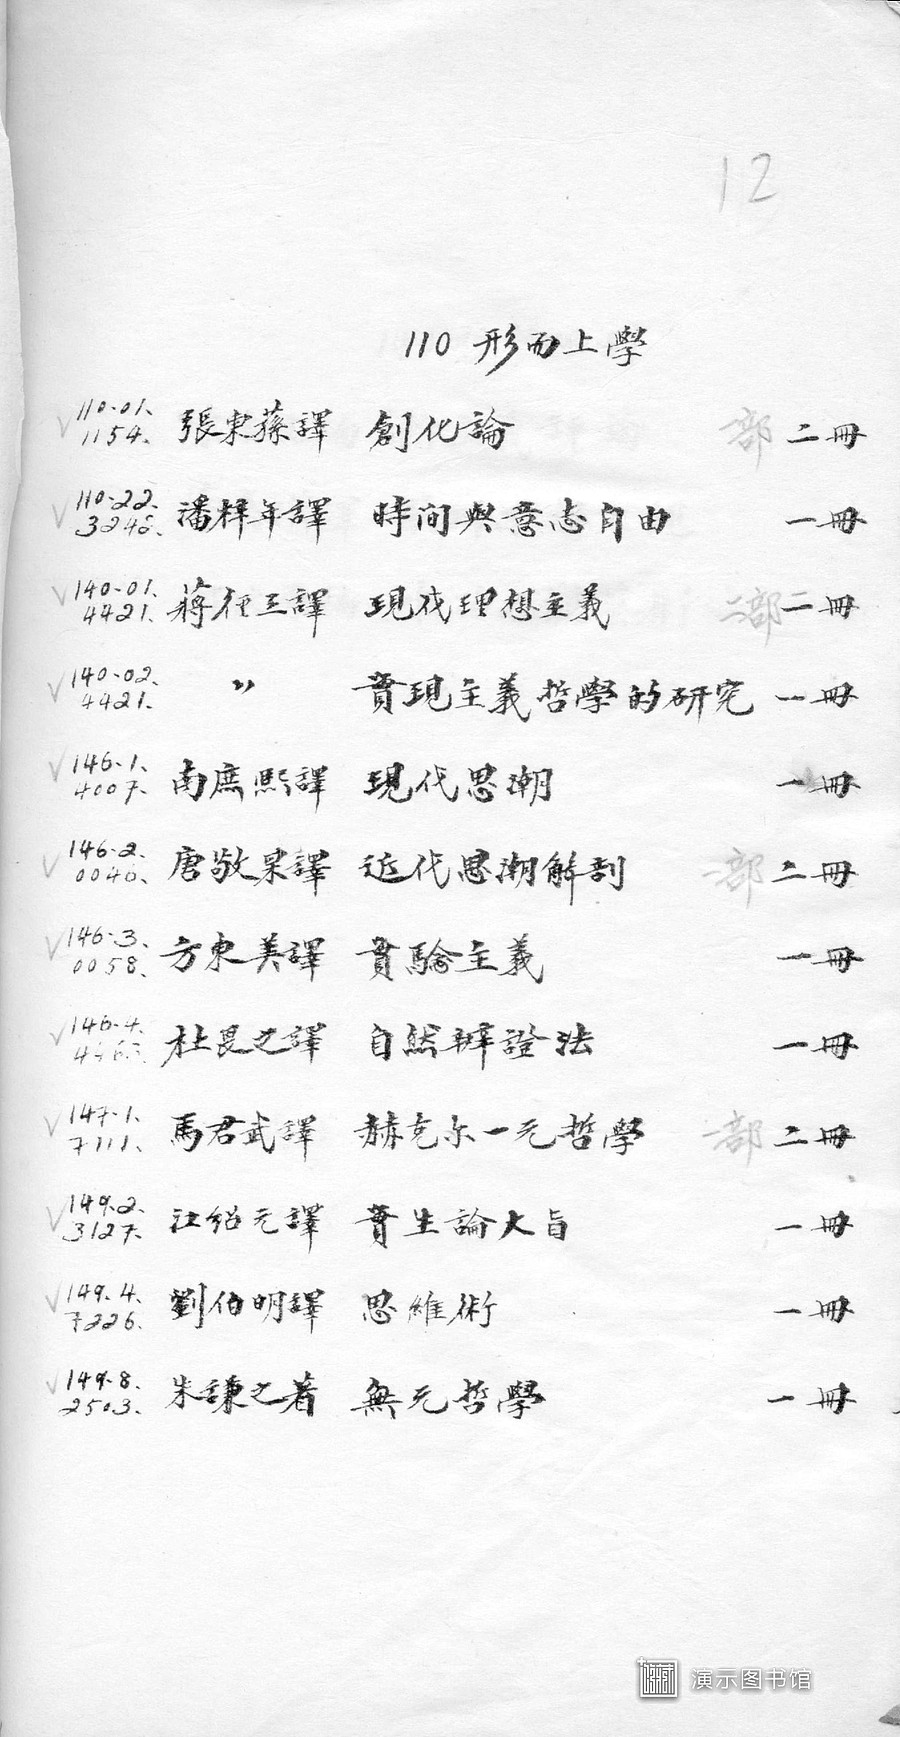 12
110 形而上學
110·01、 張東蓀譯 創化論 部 二冊
1154、
110·22、 潘梓年譯 時间與意志自由 一冊
3248、
140·01、 蔣徑三譯 現代理想主義 二部 一冊
4421、
140·02、 〃 實現主義哲學的研究 一冊
4421、
146·1、 南庶熙譯 現代思潮 一冊
4007、
146·2、 唐敬杲譯 近代思潮解剖 一部 二冊
0040、
146·3、 方東美譯 實驗主義 一冊
0058、
146·4、 杜畏之譯 自然辯證法 一冊
147·1、 馬君武譯 赫克尔一元哲學 一部 二冊
7111、
149·2、 江紹元譯 實生論大旨 一冊
3127、
149·4、 劉伯明譯 思維術 一冊
7226、
149·8、 朱謙之著 無元哲學 一冊
2503、
演示图书馆